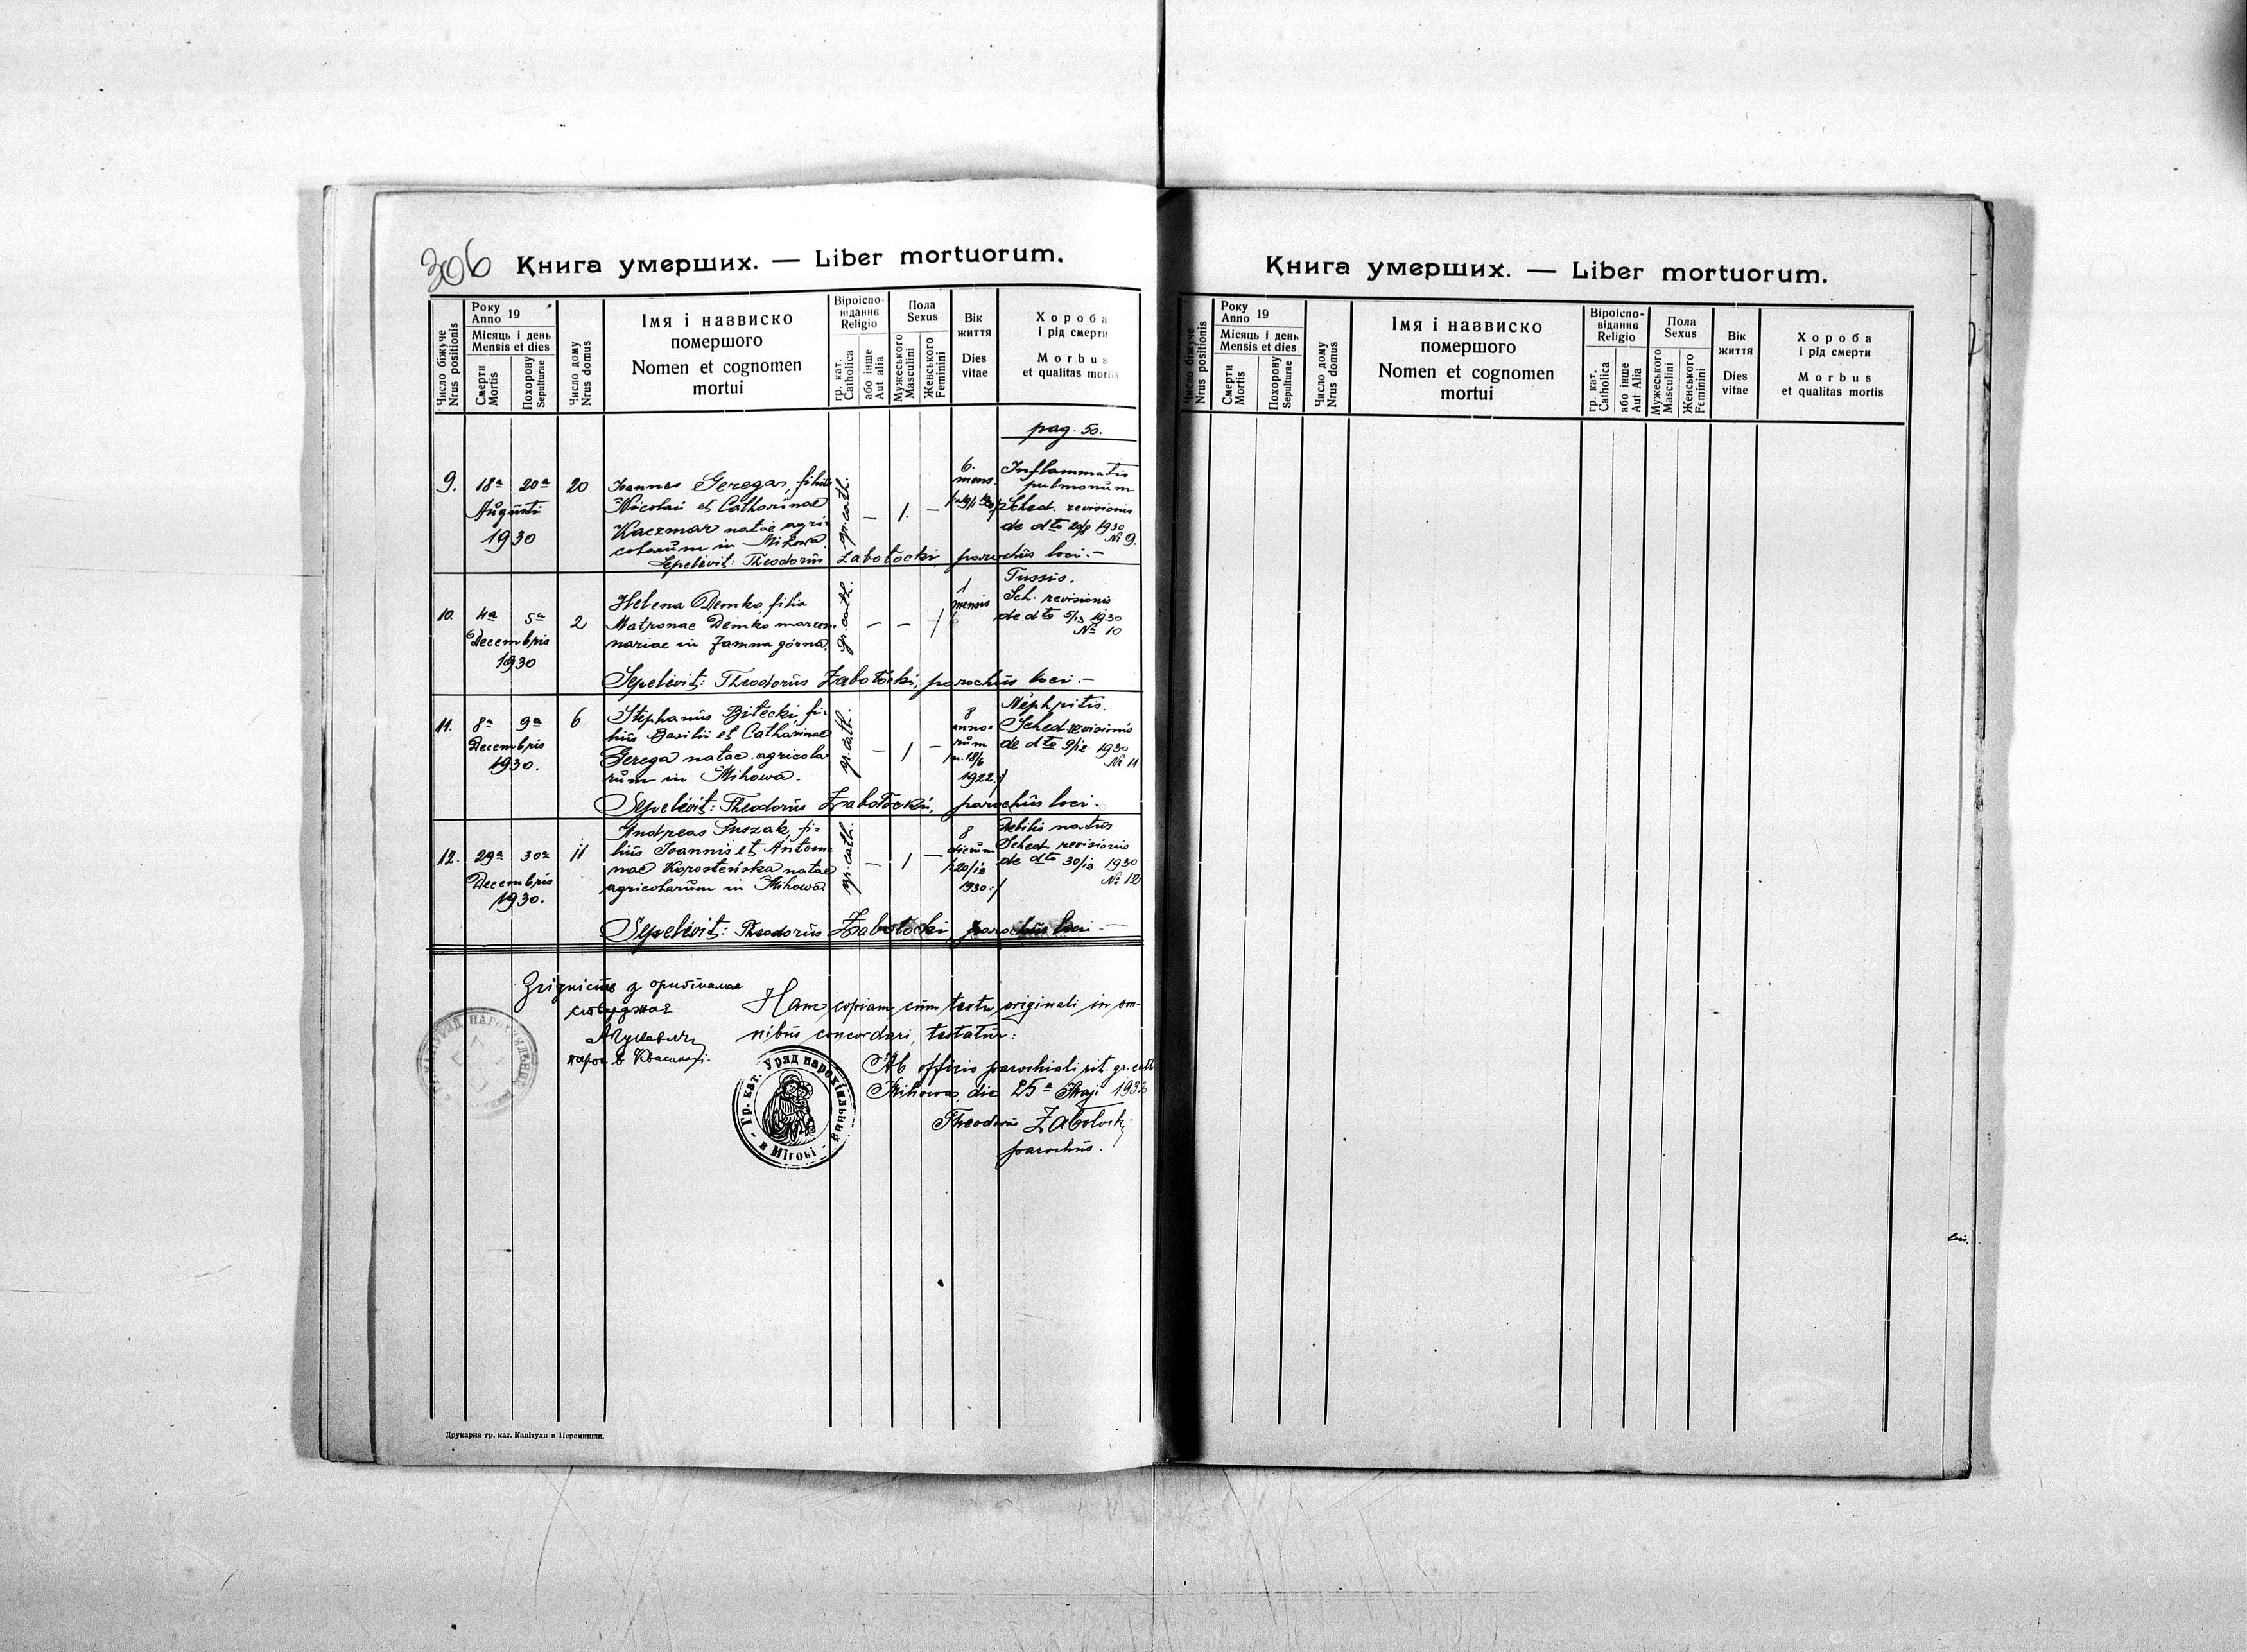 306
Книга умерших. — Liber mortuorum.
Число біжуче
Nrus positionis
Року
Anno 19
Місяць і день
Mensis et dies
Смерти
Mortis
Похорону
Sepulturae
Число дому
Nrus domus
Імя і назвиско
помершого
Nomen et cognomen
mortui
Віроіспо-
віданнє
Religio
гр. кат.
Catholica
або інше
Aut alia
Пола
Sexus
Мужеського
Masculini
Женського
Feminini
Вік
життя
Dies
vitae
Хороба
і рід смерти
Morbus
et qualitas mortis
pag. 50.
9. 18a 20a 20
Augusti
1930
Joannes Geregas, filius
Nicolai et Catharinae
Kaczmar natae agri-
colarum in Mihowa.
gr. cath.
— 1. —
6.
mens.
Inflammatio
pulmonum
Sched. revisionis
de dto 20/8 1930
№ 9.
Sepelivit: Theodorus Zabołocki, parochus loci.—
10. 4a 5a 2
Decembris
1930
Helena Demko, filia
Matronae Demko marcen-
nariae in Jamna górna.
gr. cath.
— — 1
1
mensis
Tussis.
Sch. revisionis
de dto 5/12 1930
№ 10
Sepelivit: Theodorus Zabołocki, parochus loci.—
11. 8a 9a 6
Decembris
1930.
Stephanus Bilecki, fi-
lius Basilii et Catharinae
Gerega natae, agricola-
rum in Mihowa.
gr. cath.
— 1 —
8
anno-
rum
n. 18/6
1922./
Nephritis.
Sched. revisionis
de dto 9/12 1930
№ 11
Sepelivit: Theodorus Zabołocki, parochus loci.
12. 29a 30a 11
Decembris
1930.
Andreas Puszak, fi-
lius Joannis et Antoni-
nae Korosteńska natae
agricolarum in Mihowa.
gr. cath.
— 1 —
8
dierum
20/12
1930:/
Debilis natus
Sched. revisionis
de dto 30/12 1930
№ 12
Sepelivit: Theodorus Zabołocki parochus loci —
Згідність з оригіналом
стверджає
парох в Квасинині.
Hanc copiam cum textu originali in om-
nibus concordari, testatur:
Ab officio parochiali rit. gr. cath.
Mihowa, die 25a Maji 193
Theodorus Zabołocki
parochus.
Гр. кат. Уряд парохіяльний
в Мігові
Друкарня гр. кат. Капітули в Перемишли.
Книга умерших. — Liber mortuorum.
Число біжуче
Nrus positionis
Року
Anno 19
Місяць і день
Mensis et dies
Смерти
Mortis
Похорону
Sepulturae
Число дому
Nrus domus
Імя і назвиско
помершого
Nomen et cognomen
mortui
Віроіспо-
віданнє
Religio
гр. кат.
Catholica
або інше
Aut Alia
Пола
Sexus
Мужеського
Masculini
Женського
Feminini
Вік
життя
Dies
vitae
Хороба
і рід смерти
Morbus
et qualitas mortis